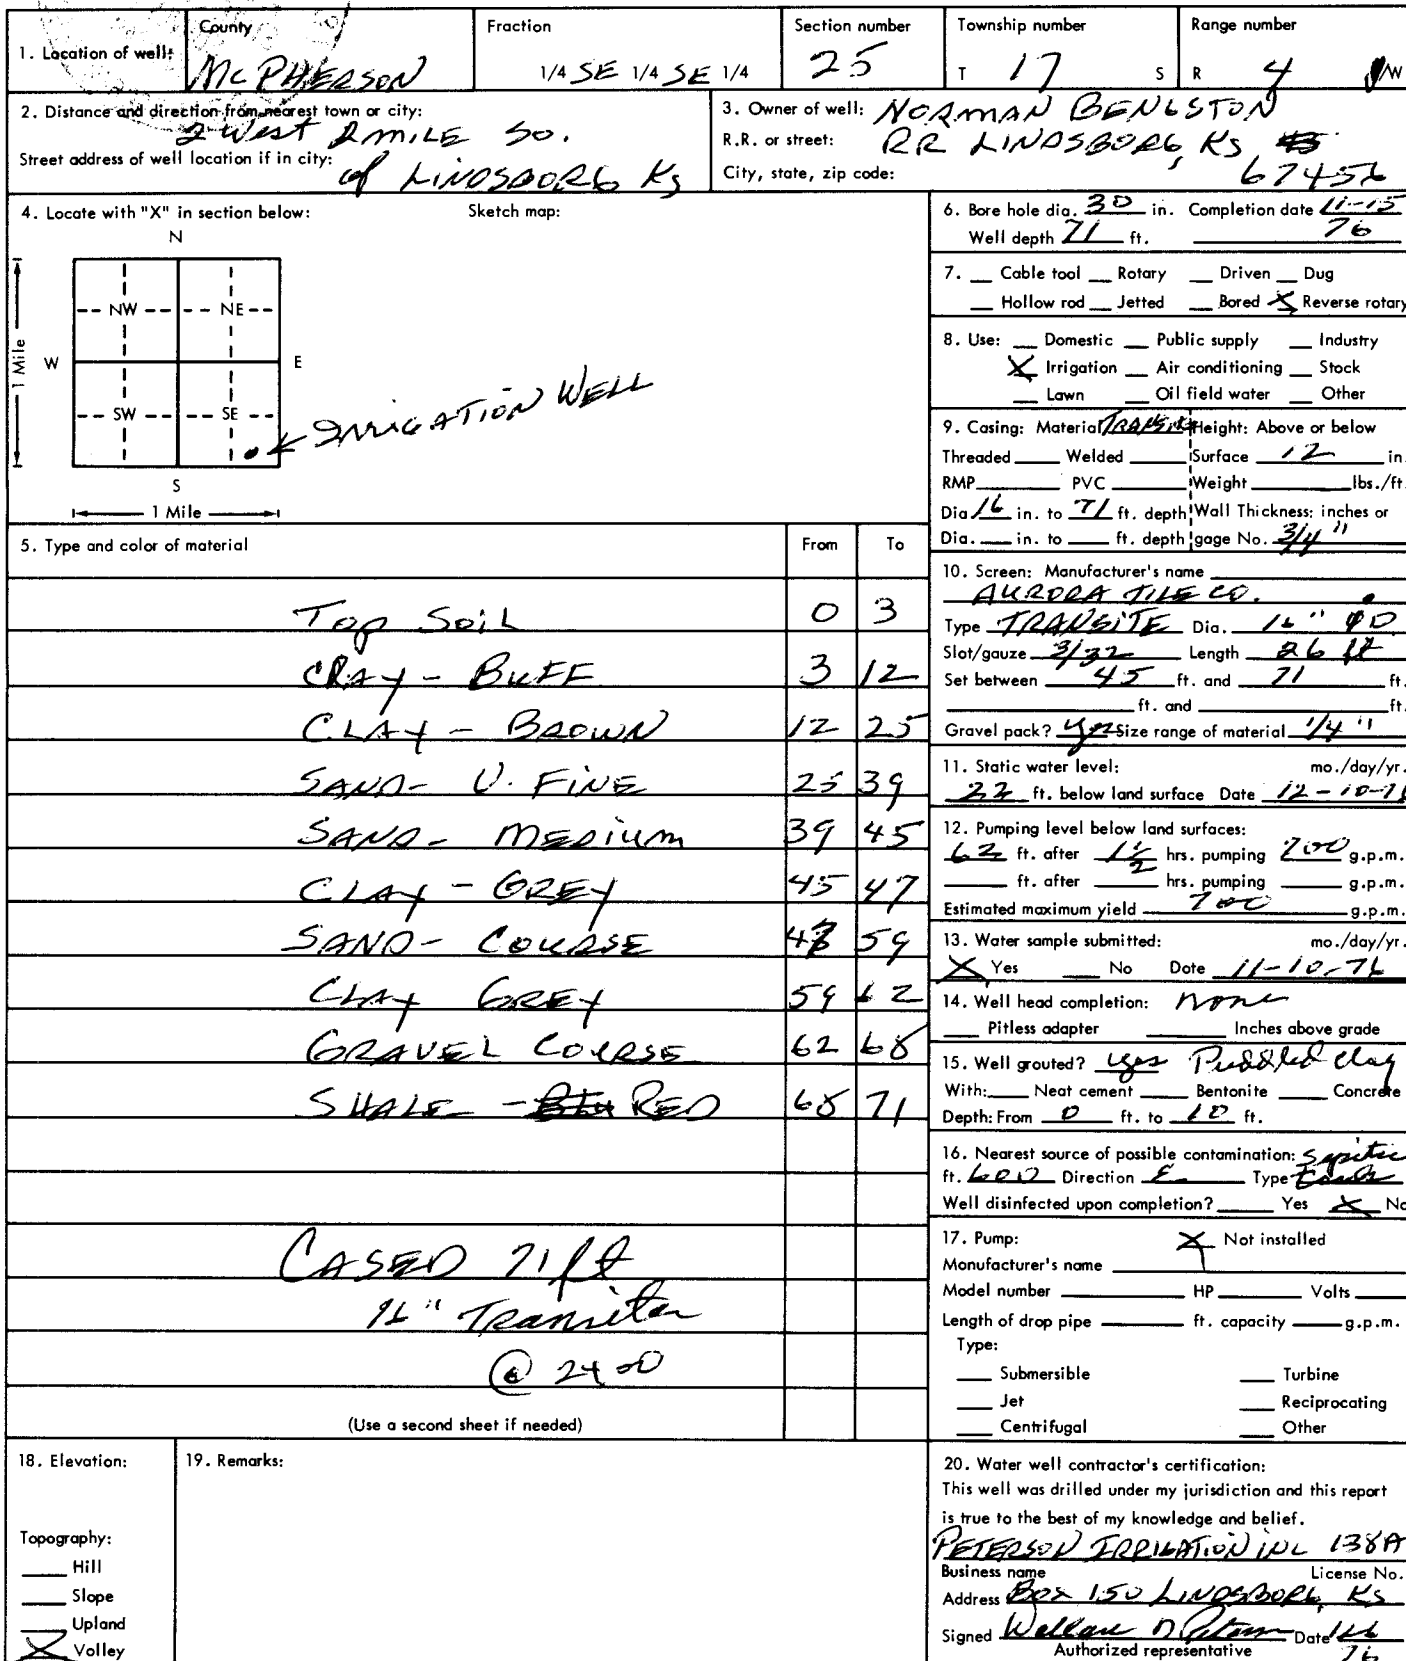 1. Location of well: County McPHERSON Fraction 1/4 SE 1/4 SE 1/4 Section number 25 Township number T 17 S Range number R 4 W
2. Distance and direction from nearest town or city: 2 West 2 MILE SO.
Street address of well location if in city: of LINDSBORG Ks
3. Owner of well: NORMAN BENGSTON
R.R. or street: RR LINDSBORG, KS
City, state, zip code: 67456
4. Locate with "X" in section below: Sketch map:
N
NW NE
W E
1 Mile
SW SE
IRRIGATION WELL
S
1 Mile
5. Type and color of material From To
Top Soil 0 3
CLAY - BUFF 3 12
CLAY - BROWN 12 25
SAND - V. FINE 25 39
SAND - MEDIUM 39 45
CLAY - GREY 45 47
SAND - COURSE 47 59
CLAY GREY 59 62
GRAVEL COURSE 62 68
SHALE - RED 68 71
CASED 71 ft
16" Transite
@ 2400
(Use a second sheet if needed)
6. Bore hole dia. 30 in. Completion date 11-15
Well depth 71 ft. 76
7. Cable tool Rotary Driven Dug
Hollow rod Jetted Bored X Reverse rotary
8. Use: Domestic Public supply Industry
X Irrigation Air conditioning Stock
Lawn Oil field water Other
9. Casing: Material TRANSITE Height: Above or below
Threaded Welded Surface 12 in.
RMP PVC Weight lbs./ft.
Dia 16 in. to 71 ft. depth Wall Thickness: inches or
Dia. in. to ft. depth gage No. 3/4"
10. Screen: Manufacturer's name
AURORA TILE CO.
Type TRANSITE Dia. 16" OD
Slot/gauze 3/32 Length 26 ft
Set between 45 ft. and 71 ft.
ft. and ft.
Gravel pack? yes Size range of material 1/4"
11. Static water level: mo./day/yr.
22 ft. below land surface Date 12-10-76
12. Pumping level below land surfaces:
62 ft. after 1 1/2 hrs. pumping 700 g.p.m.
ft. after hrs. pumping g.p.m.
Estimated maximum yield 700 g.p.m.
13. Water sample submitted: mo./day/yr.
X Yes No Date 11-10-76
14. Well head completion: none
Pitless adapter Inches above grade
15. Well grouted? yes Puddled clay
With: Neat cement Bentonite Concrete
Depth: From 0 ft. to 10 ft.
16. Nearest source of possible contamination: Septic
ft. 600 Direction E. Type
Well disinfected upon completion? Yes X No
17. Pump: X Not installed
Manufacturer's name
Model number HP Volts
Length of drop pipe ft. capacity g.p.m.
Type:
Submersible Turbine
Jet Reciprocating
Centrifugal Other
18. Elevation: 19. Remarks:
Topography:
Hill
Slope
Upland
X Valley
20. Water well contractor's certification:
This well was drilled under my jurisdiction and this report
is true to the best of my knowledge and belief.
PETERSON IRRIGATION INC 138A
Business name License No.
Address BOX 150 LINDSBORG, KS
Signed Date 76
Authorized representative